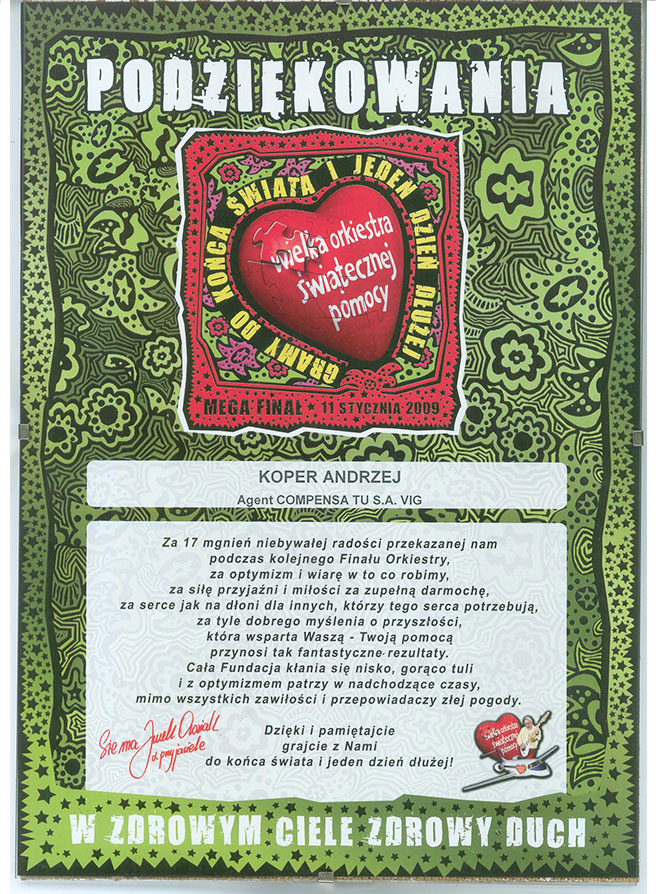 PODZIĘKOWANIA
GRAMY DO KOŃCA ŚWIATA I JEDEN DZIEŃ DŁUŻEJ
wielka orkiestra
świątecznej
pomocy
MEGA FINAŁ ★ 11 STYCZNIA 2009
KOPER ANDRZEJ
Agent COMPENSA TU S.A. VIG
Za 17 mgnień niebywałej radości przekazanej nam
podczas kolejnego Finału Orkiestry,
za optymizm i wiarę w to co robimy,
za siłę przyjaźni i miłości za zupełną darmochę,
za serce jak na dłoni dla innych, którzy tego serca potrzebują,
za tyle dobrego myślenia o przyszłości,
która wsparta Waszą - Twoją pomocą
przynosi tak fantastyczne rezultaty.
Cała Fundacja kłania się nisko, gorąco tuli
i z optymizmem patrzy w nadchodzące czasy,
mimo wszystkich zawiłości i przepowiadaczy złej pogody.
Dzięki i pamiętajcie
grajcie z Nami
do końca świata i jeden dzień dłużej!
Sie ma Jurek Owsiak
z przyjaciele
wielka orkiestra
świątecznej
pomocy
W ZDROWYM CIELE ZDROWY DUCH